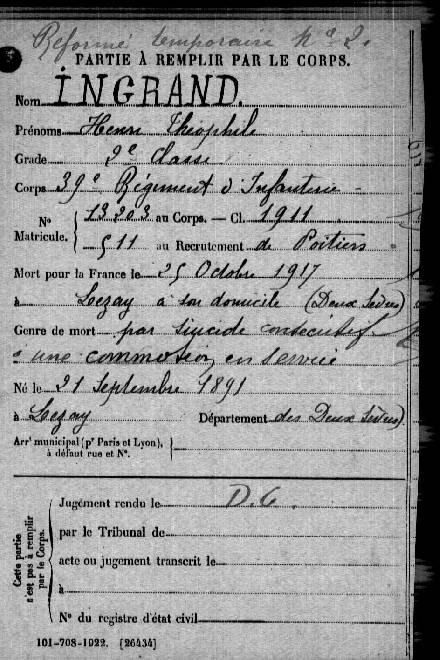 Réformé temporaire No 2.
PARTIE À REMPLIR PAR LE CORPS.
Nom INGRAND.
Prénoms Henri Théophile
Grade 2e Classe
Corps 39e Régiment d'Infanterie
No Matricule. 13203 au Corps. — Cl. 1911
511 au Recrutement de Poitiers
Mort pour la France le 25 Octobre 1917
à Lezay à son domicile (Deux Sèvres)
Genre de mort par suicide consécutif
à une commotion en service
Né le 21 Septembre 1891
à Lezay Département des Deux Sèvres)
Arrt municipal (pr Paris et Lyon),
à défaut rue et No.
Cette partie n'est pas à remplir par le Corps.
Jugement rendu le D.C.
par le Tribunal de
acte ou jugement transcrit le
à
No du registre d'état civil
101-708-1922. [26434]